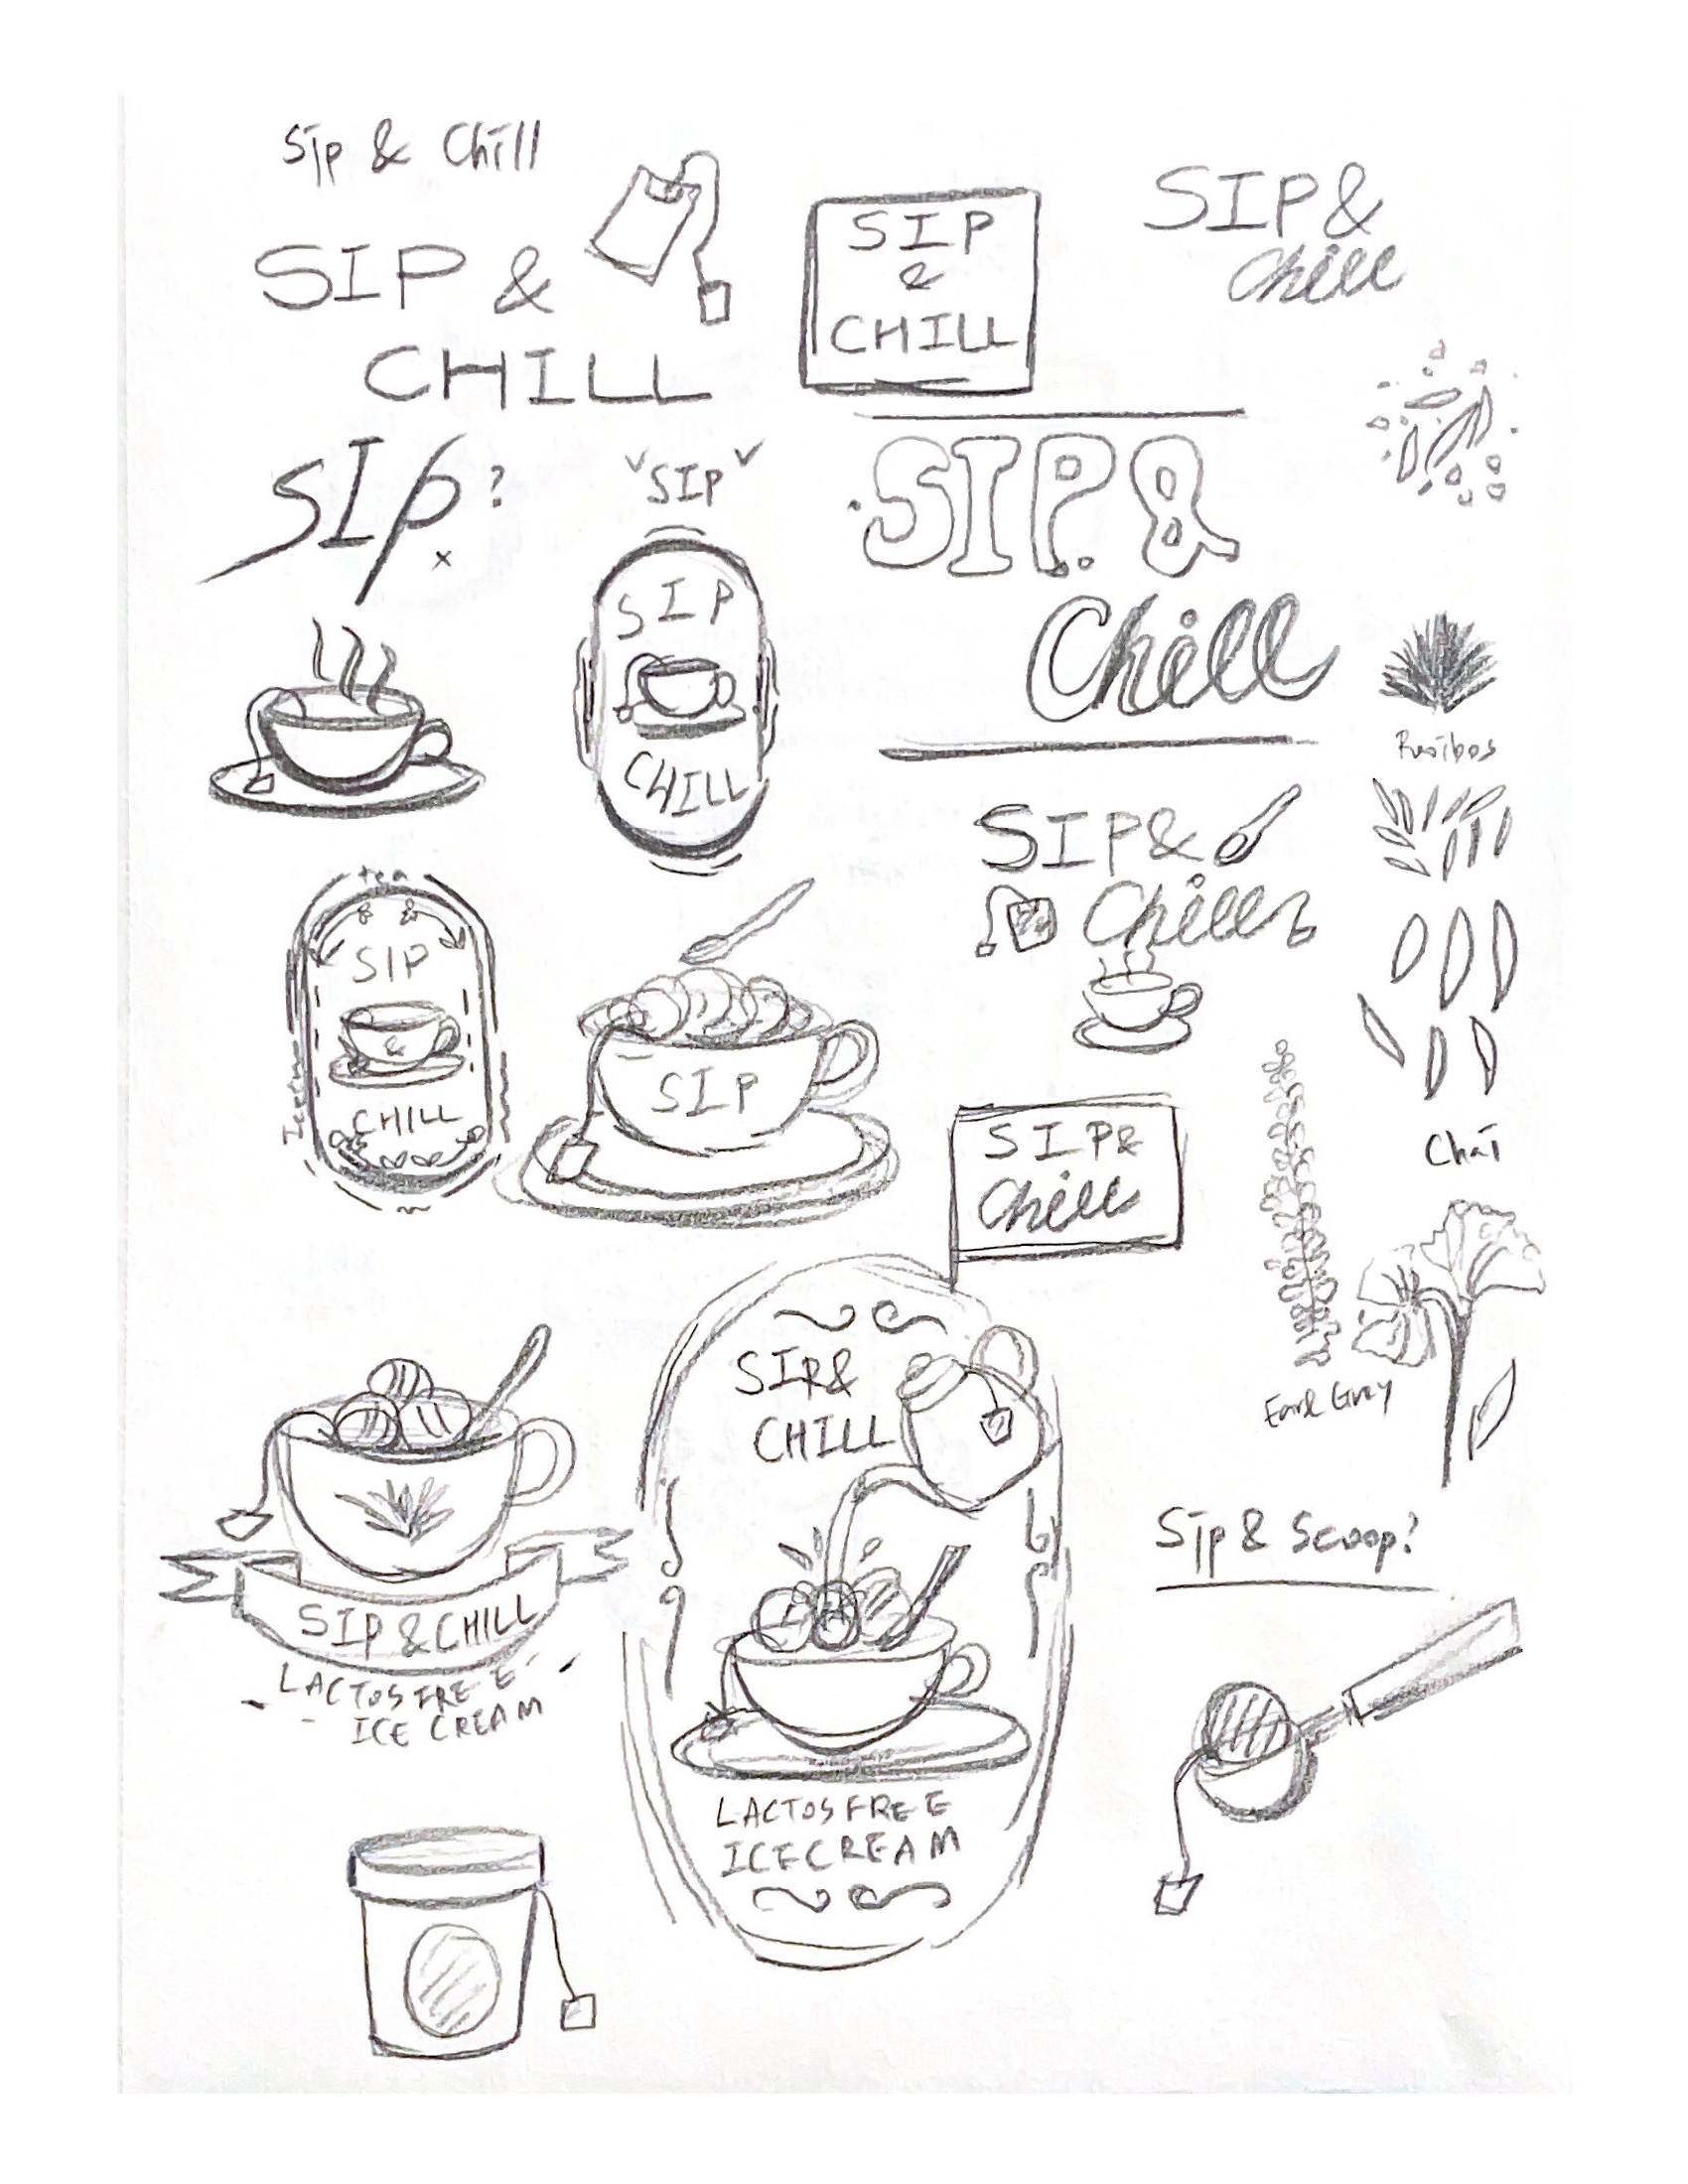 Sip & Chill
SIP &
CHILL
SIP
&
CHILL
SIP &
Chill
SIP?
x
SIP
SIP
CHILL
SIP &
Chill
Rooibos
tea
& &
SIP
&
CHILL
SIP
SIP &
Chill
SIP &
Chill
Chai
Earl Grey
SIP &
CHILL
LACTOS FREE
ICECREAM
SIP & CHILL
LACTOS FREE
ICE CREAM
Sip & Scoop?